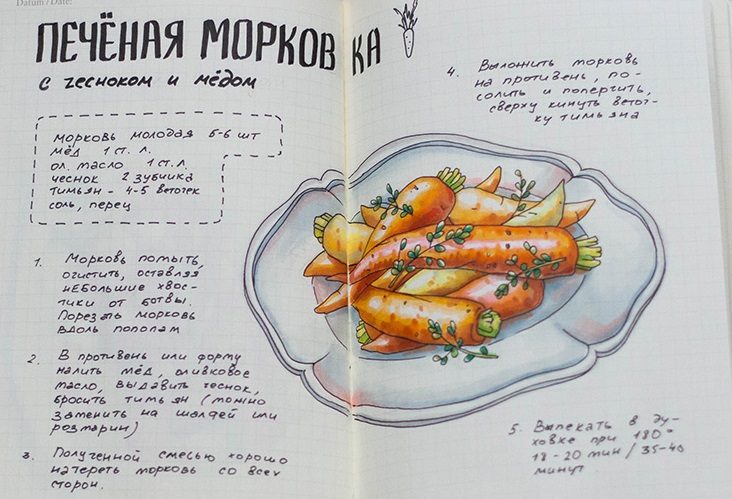 Datum / Date:
ПЕЧЁНАЯ МОРКОВКА
с чесноком и мёдом
морковь молодая 5-6 шт
мёд 1 ст. л.
ол. масло 1 ст. л
чеснок 2 зубчика
тимьян - 4-5 веточек
соль, перец
1. Морковь помыть,
очистить, оставляя
небольшие хвос-
тики от ботвы.
Порезать морковь
вдоль пополам
2. В противень или форму
налить мёд, оливковое
масло, выдавить чеснок,
бросить тимьян (можно
заменить на шалфей или
розмарин)
3. Полученной смесью хорошо
натереть морковь со всех
сторон.
4. Выложить морковь
на противень, по-
солить и поперчить,
сверху кинуть веточ-
ку тимьяна
5. Выпекать в ду-
ховке при 180°
18-20 мин / 35-40
минут.